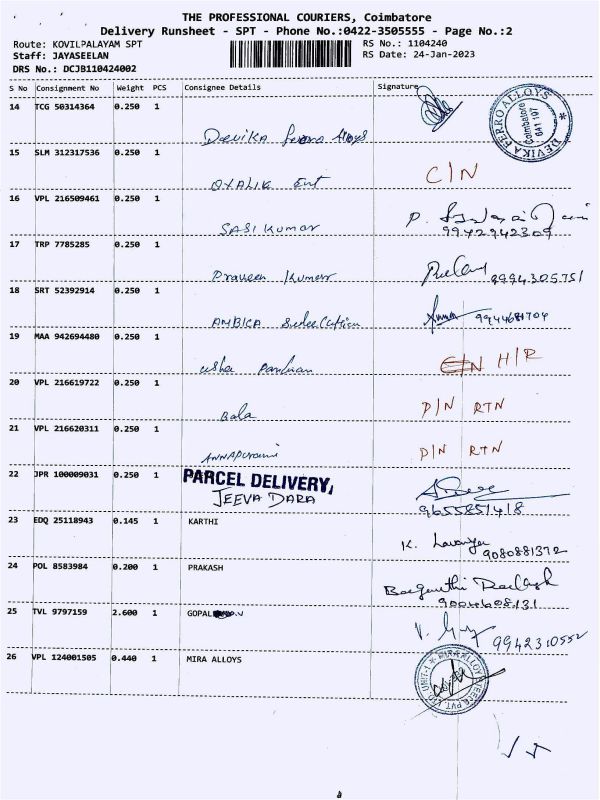 THE PROFESSIONAL COURIERS, Coimbatore
Delivery Runsheet - SPT - Phone No.:0422-3505555 - Page No.:2
Route: KOVILPALAYAM SPT RS No.: 1104240
Staff: JAYASEELAN RS Date: 24-Jan-2023
DRS No.: DCJB110424002
S No Consignment No Weight PCS Consignee Details Signature
14 TCG 50314364 0.250 1
Devika ferro Alloys
DEVIKA FERRO ALLOYS * Coimbatore 641 107
15 SLM 312317536 0.250 1
OXALIK Ent C/N
16 VPL 216509461 0.250 1
SASI Kumar P.
9942942309
17 TRP 7785285 0.250 1
Praveen Kumar 9994305751
18 SRT 52392914 0.250 1
AMBIKA 9944681704
19 MAA 942694480 0.250 1
usha H/R
20 VPL 216619722 0.250 1
Bala D/N RTN
21 VPL 216620311 0.250 1
D/N RTN
22 JPR 100009031 0.250 1 PARCEL DELIVERY,
JEEVA DARA
9655851418
23 EDQ 25118943 0.145 1 KARTHI
K. Lavanya 9080881372
24 POL 8583984 0.200 1 PRAKASH
25 TVL 9797159 2.600 1 GOPAL
V. 9942310552
26 VPL 124001505 0.440 1 MIRA ALLOYS